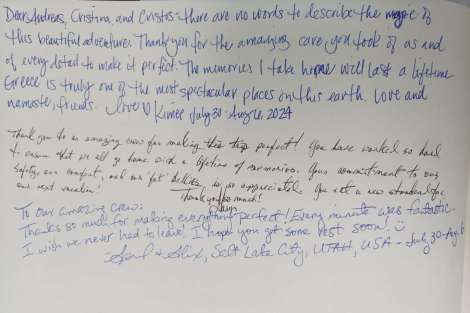 Dear Andreas, Cristina, and Cristos- there are no words to describe the magic of
this beautiful adventure. Thank you for the amazing care, you took of us and
of every detail to make it perfect. The memories I take home will last a lifetime
Greece is truly one of the most spectacular places on this earth. Love and
namaste, friends. Love Kimee July 30 - Aug 6, 2024
Thank you to an amazing crew for making this trip perfect! You have worked so hard
to ensure that we all go home with a lifetime of memories. Your commitment to our
safety, our comfort, and our fat bellies is so appreciated. You set a new standard for
our next vacation! Thank you so much!
To our amazing crew:
Thanks so much for making everything perfect! Every minute was fantastic.
I wish we never had to leave! I hope you get some rest soon! ☺
Salt Lake City, UTAH, USA - July 30-Aug 6